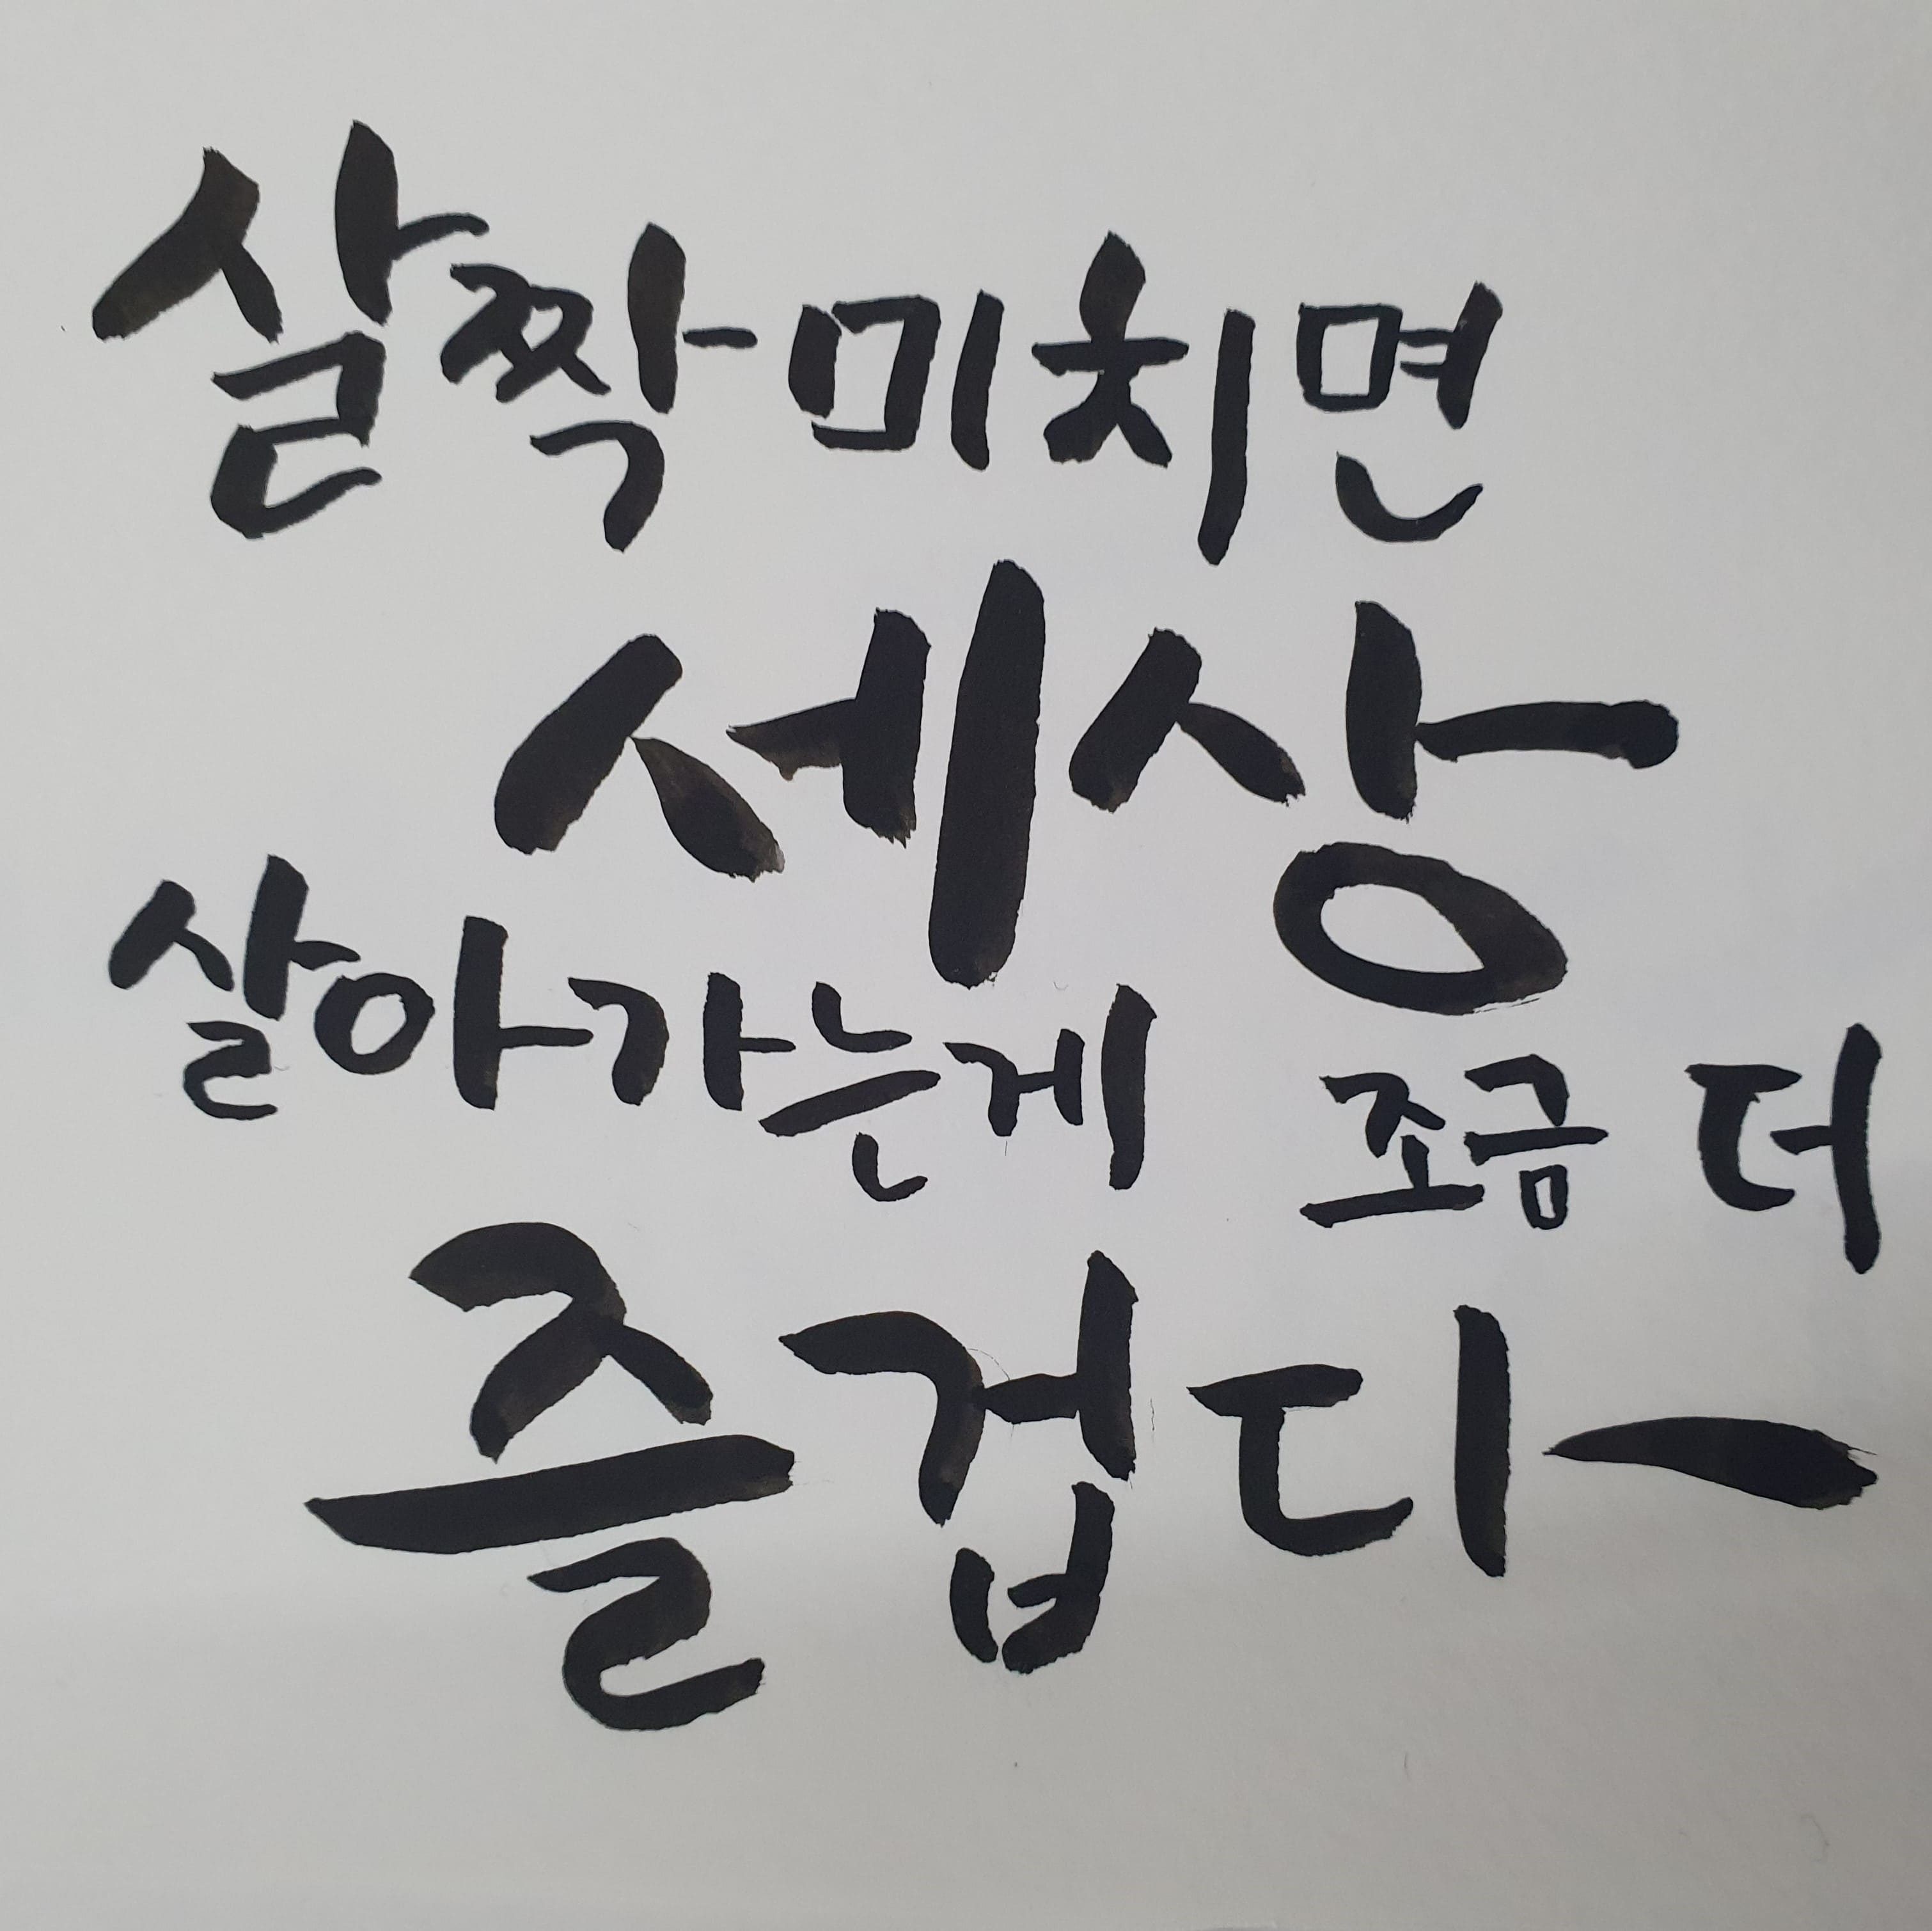 살짝 미치면
세상
살아가는게 조금 더
즐겁다